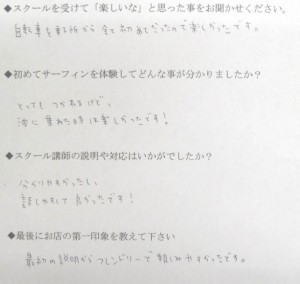 ◆スクールを受けて「楽しいな」と思った事をお聞かせください。
自転車を乗る所から全て初めてだったので楽しかったです。
◆初めてサーフィンを体験してどんな事が分かりましたか？
とってもつかれるけど、
波に乗れた時は楽しかったです！
◆スクール講師の説明や対応はいかがでしたか？
分かりやすかったし、
話しやすくて良かったです！
◆最後にお店の第一印象を教えて下さい
最初の説明からフレンドリーで親しみやすかったです。